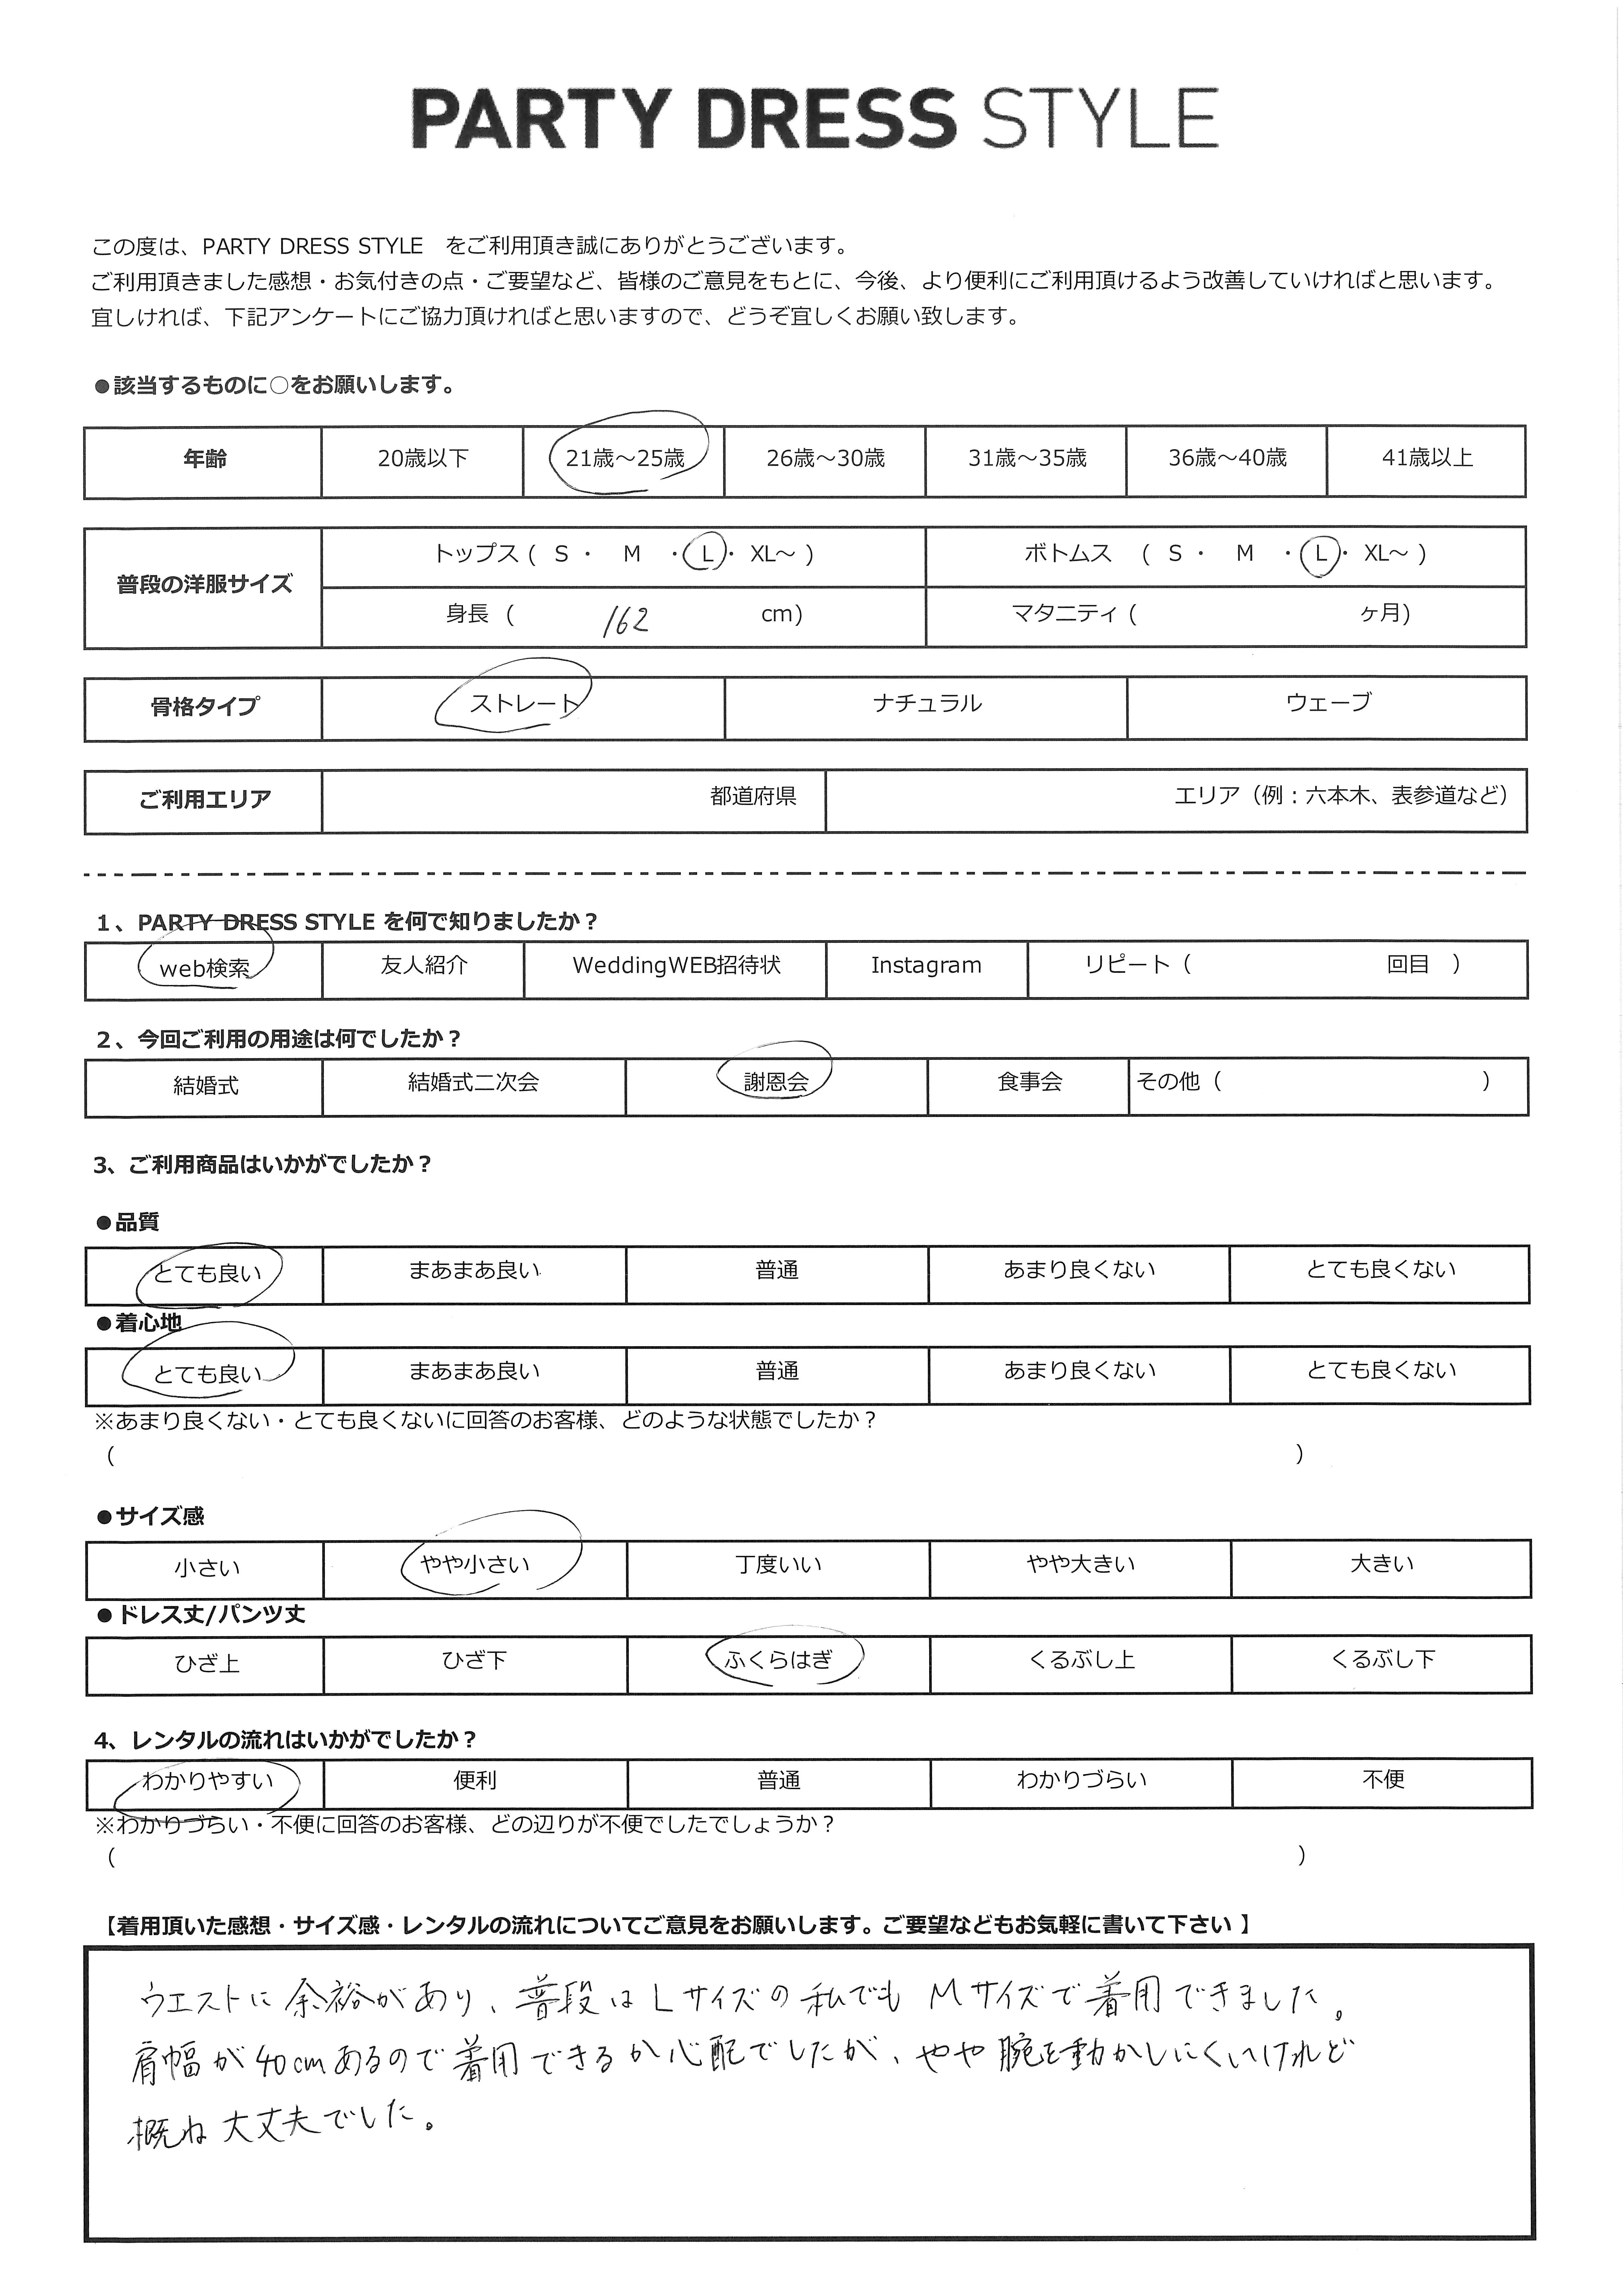 PARTY DRESS STYLE
この度は、PARTY DRESS STYLE　をご利用頂き誠にありがとうございます。
ご利用頂きました感想・お気付きの点・ご要望など、皆様のご意見をもとに、今後、より便利にご利用頂けるよう改善していければと思います。
宜しければ、下記アンケートにご協力頂ければと思いますので、どうぞ宜しくお願い致します。
●該当するものに○をお願いします。
年齢 20歳以下 21歳～25歳 26歳～30歳 31歳～35歳 36歳～40歳 41歳以上
普段の洋服サイズ
トップス ( S ・ M ・ L ・ XL～ ) ボトムス ( S ・ M ・ L ・ XL～ )
身長 ( 162 cm) マタニティ ( ヶ月)
骨格タイプ ストレート ナチュラル ウェーブ
ご利用エリア 都道府県 エリア（例：六本木、表参道など）
1、PARTY DRESS STYLE を何で知りましたか？
web検索 友人紹介 WeddingWEB招待状 Instagram リピート（ 回目 ）
2、今回ご利用の用途は何でしたか？
結婚式 結婚式二次会 謝恩会 食事会 その他（ ）
3、ご利用商品はいかがでしたか？
●品質
とても良い まあまあ良い 普通 あまり良くない とても良くない
●着心地
とても良い まあまあ良い 普通 あまり良くない とても良くない
※あまり良くない・とても良くないに回答のお客様、どのような状態でしたか？
（ ）
●サイズ感
小さい やや小さい 丁度いい やや大きい 大きい
●ドレス丈/パンツ丈
ひざ上 ひざ下 ふくらはぎ くるぶし上 くるぶし下
4、レンタルの流れはいかがでしたか？
わかりやすい 便利 普通 わかりづらい 不便
※わかりづらい・不便に回答のお客様、どの辺りが不便でしたでしょうか？
（ ）
【着用頂いた感想・サイズ感・レンタルの流れについてご意見をお願いします。ご要望などもお気軽に書いて下さい 】
ウエストに余裕があり、普段はLサイズの私でもMサイズで着用できました。
肩幅が40cmあるので着用できるか心配でしたが、やや腕を動かしにくいけれど
概ね大丈夫でした。